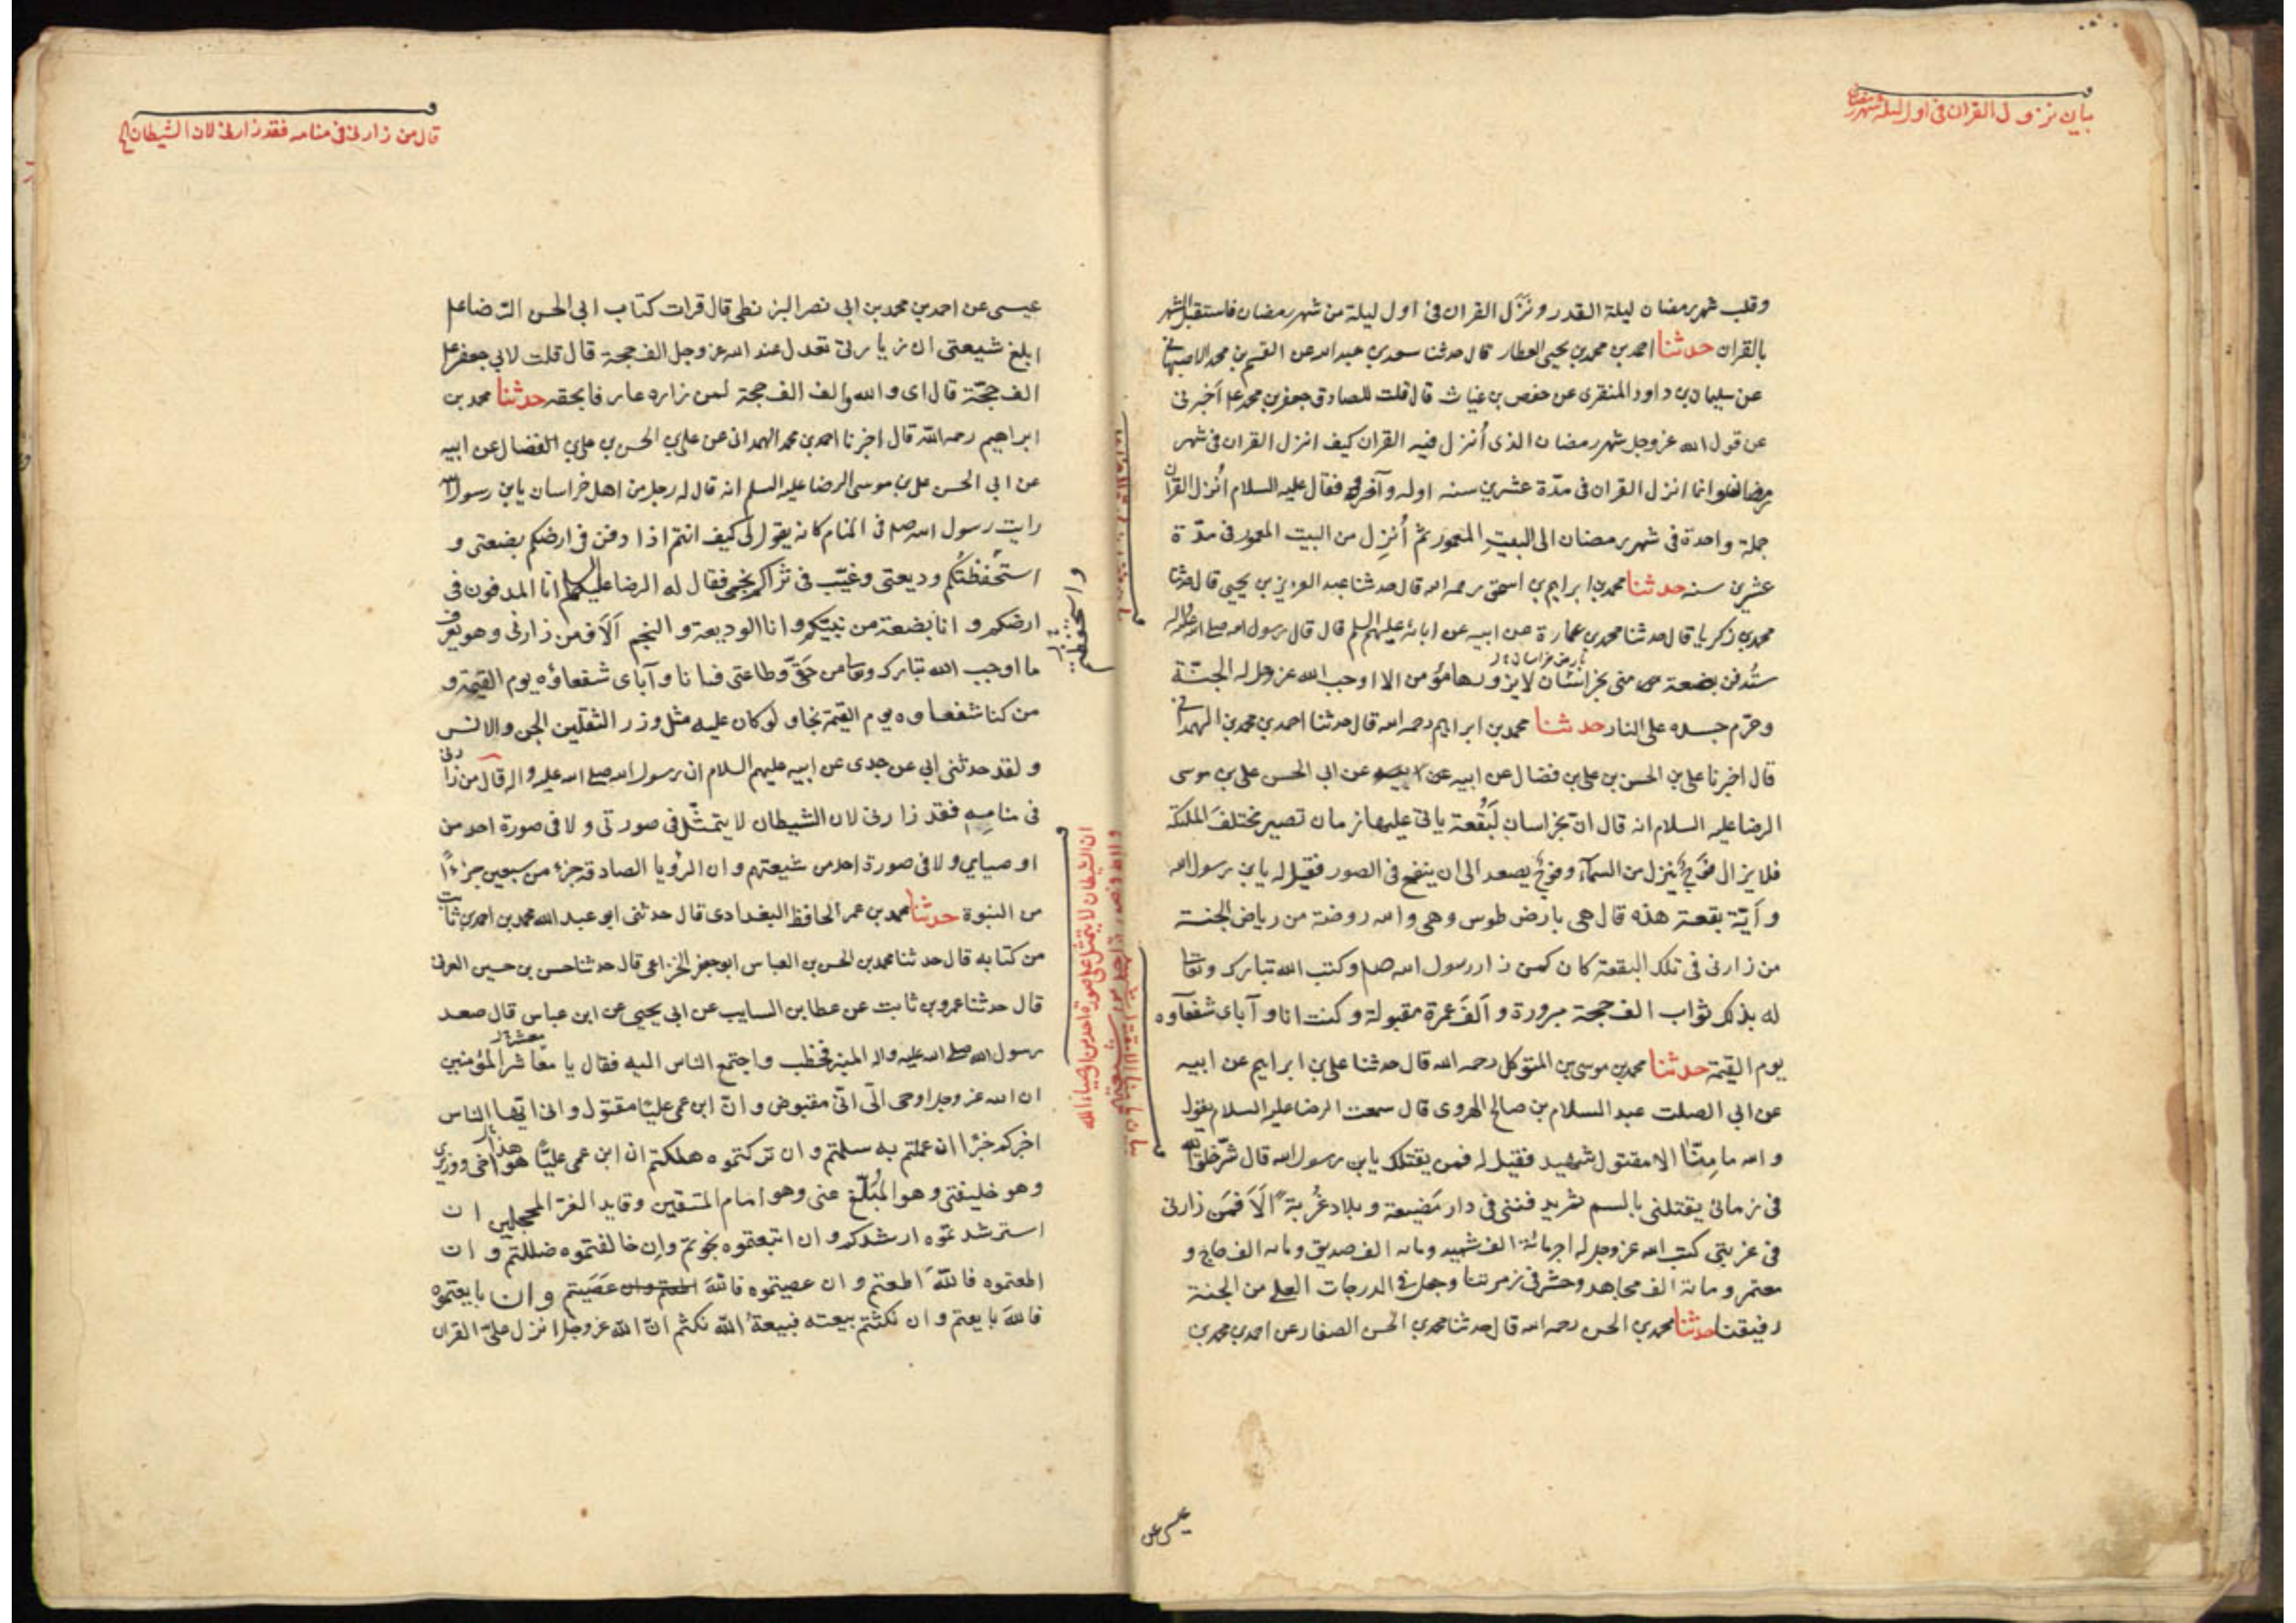 بيان نزول القران فى اول ليلة شهر رمضان
وقلب شهر رمضان ليلة القدر ونَزَل القران فى اول ليلة من شهر رمضان فاستقبل الشهر
بالقران حدثنا احمد بن محمد بن يحيى العطار قال حدثنا سعد بن عبد الله عن القسم بن محمد الاصبهانى
عن سليمان بن داود المنقرى عن حفص بن غياث قال قلت للصادق جعفر بن محمد ع اَخبرنى
عن قول الله عز وجل شهر رمضان الذى اُنزل فيه القران كيف انزل القران فى شهر
رمضان وانما انزل القران فى مدّة عشرين سنه اوله وآخره فقال عليه السلام اُنزل القران
جملة واحدة فى شهر رمضان الى البيت المعمور ثم اُنزِل من البيت المعمور فى مدّة
عشرين سنه حدثنا محمد بن ابراهيم بن اسحق رحمه الله قال حدثنا عبد العزيز بن يحيى قال حدثنا
محمد بن زكريا قال حدثنا محمد بن عمارة عن ابيه عن ابائه عليهم السلم قال قال رسول الله صلى الله عليه واله
بارض خراسان
ستُدفن بضعة منى بخراسان لا يزورها مؤمن الا اوجب الله عز وجل له الجنّة
وحرّم جسده على النار حدثنا محمد بن ابراهيم رحمه الله قال حدثنا احمد بن محمد بن الهمدانى
قال اخبرنا على بن الحسن بن على بن فضال عن ابيه عن ابى الحسن على بن موسى
الرضا عليه السلام انه قال ان بخراسان لَبُقعة ياتى عليها زمان تصير مختلفَ الملئكة
فلا يزال فَوجٌ يَنزل من السمآء وفوجٌ يصعد الى ان ينفخ فى الصور فقيل له يا بن رسول الله
وآيّة بقعة هذه قال هى بارض طوس وهى والله روضة من رياض الجنة
من زارنى فى تلك البقعة كان كمن زار رسول الله صلم وكتب الله تبارك وتعالى
له بذلك ثواب الف حجة مبرورة واَلفَ عمرة مقبولة وكنت انا وآباى شفعآوه
يوم القيمة حدثنا محمد بن موسى بن المتوكل رحمه الله قال حدثنا على بن ابراهيم عن ابيه
عن ابى الصلت عبد السلام بن صالح الهروى قال سمعت الرضا عليه السلام يقول
والله ما مِنّا الا مقتول شهيد فقيل له فمن يقتلك يا بن رسول الله قال شرّ خلق الله
فى زمانى يقتلنى بالسم ثم يدفننى فى دار مَضيعة وبلاد غُربةً اَلَا فمَن زارنى
فى غربتى كتب الله عز وجل له اجر مائة الف شهيد ومائه الف صديق ومائه الف حاج و
معتمر ومائة الف مجاهد وحشر فى زمرتنا وجعل فى الدرجات العلى من الجنة
رفيقنا حدثنا محمد بن الحسن رحمه الله قال حدثنا محمد بن الحسن الصفار عن احمد بن محمد بن
عيسى عن
قال من زارنى فى منامه فقد زارنى لان الشيطان لا
عيسى عن احمد بن محمد بن ابى نصر البزنطى قال قرات كتاب ابى الحسن الرّضا ع
ابلغ شيعتى ان زيارتى تعدل عند الله عز وجل الف حجة قال قلت لابى جعفر ع
الف حجّة قال اى والله والف الف حجة لمن زاره عارفا بحقه حدثنا محمد بن
ابراهيم رحمه الله قال اخبرنا احمد بن محمد الهمدانى عن على بن الحسن بن على بن الفضال عن ابيه
عن ابى الحسن على بن موسى الرضا عليه السلم انه قال له رجل من اهل خراسان يا بن رسول الله
رايت رسول الله صلم فى المنام كانه يقول لى كيف انتم اذا دفن فى ارضكم بضعتى و
استُحفِظتُكم وديعتى وغيّب فى ثراكم نجمى فقال له الرضا عليه السلم انا المدفون فى
ارضكم وانا بضعة من نبيّكم وانا الوديعة والنجم اَلَا فمن زارنى وهو يعرف
ما اوجب الله تبارك وتعالى من حقّى وطاعتى فانا وآباى شفعاؤه يوم القيمة و
من كنا شفعاوه يوم القيمة نجا ولو كان عليه مثل وزر الثقلين الجن والانس
ولقد حدثنى ابى عن جدى عن ابيه عليهم السلام ان رسول الله صلى الله عليه واله قال من زارنى
فى منامِه فقد زارنى لان الشيطان لا يتمثّل فى صورتى ولا فى صورة احد من
اوصيايى ولا فى صورة احد من شيعتهم وان الرؤيا الصادقة جزء من سبعين جزءًا
من النبوة حدثنا محمد بن عمر الحافظ البغدادى قال حدثنى ابو عبد الله محمد بن احمد بن ثابت
من كتابه قال حدثنا محمد بن الحسن بن العباس ابو جعفر الخزاعى قال حدثنا حسن بن حسين العرنى
قال حدثنا عمرو بن ثابت عن عطا بن السايب عن ابى يحيى عن ابن عباس قال صعد
معشر
رسول الله صلى الله عليه واله المنبر فخطب واجتمع الناس اليه فقال يا معاشر المؤمنين
ان الله عز وجل اوحى الىّ انّى مقبوض وانّ ابن عمى عليًا مقتول وانى ايها الناس
اخبركم خبرًا ان عملتم به سلمتم وان تركتموه هلكتم ان ابن عمى عليًا هذا هو اخى ووزيرى
وهو خليفتى وهو المُبلّغ عنى وهو امام المتقين وقايد الغرّ المحجلين ان
استرشدتموه ارشدكم وان اتبعتموه نجوتم وان خالفتموه ضللتم وان
اطعتموه فاللهَ اطعتم وان عصيتموه فاللهَ عَصَيتم وان بايعتموه
فاللهَ بايعتم وان نكثتم بيعته فبيعةَ الله نكثتم انّ الله عز وجل انزل علىّ القران
واستحفظتم
ان الشيطان لا يتمثل على صورة احد من اوصياء الله